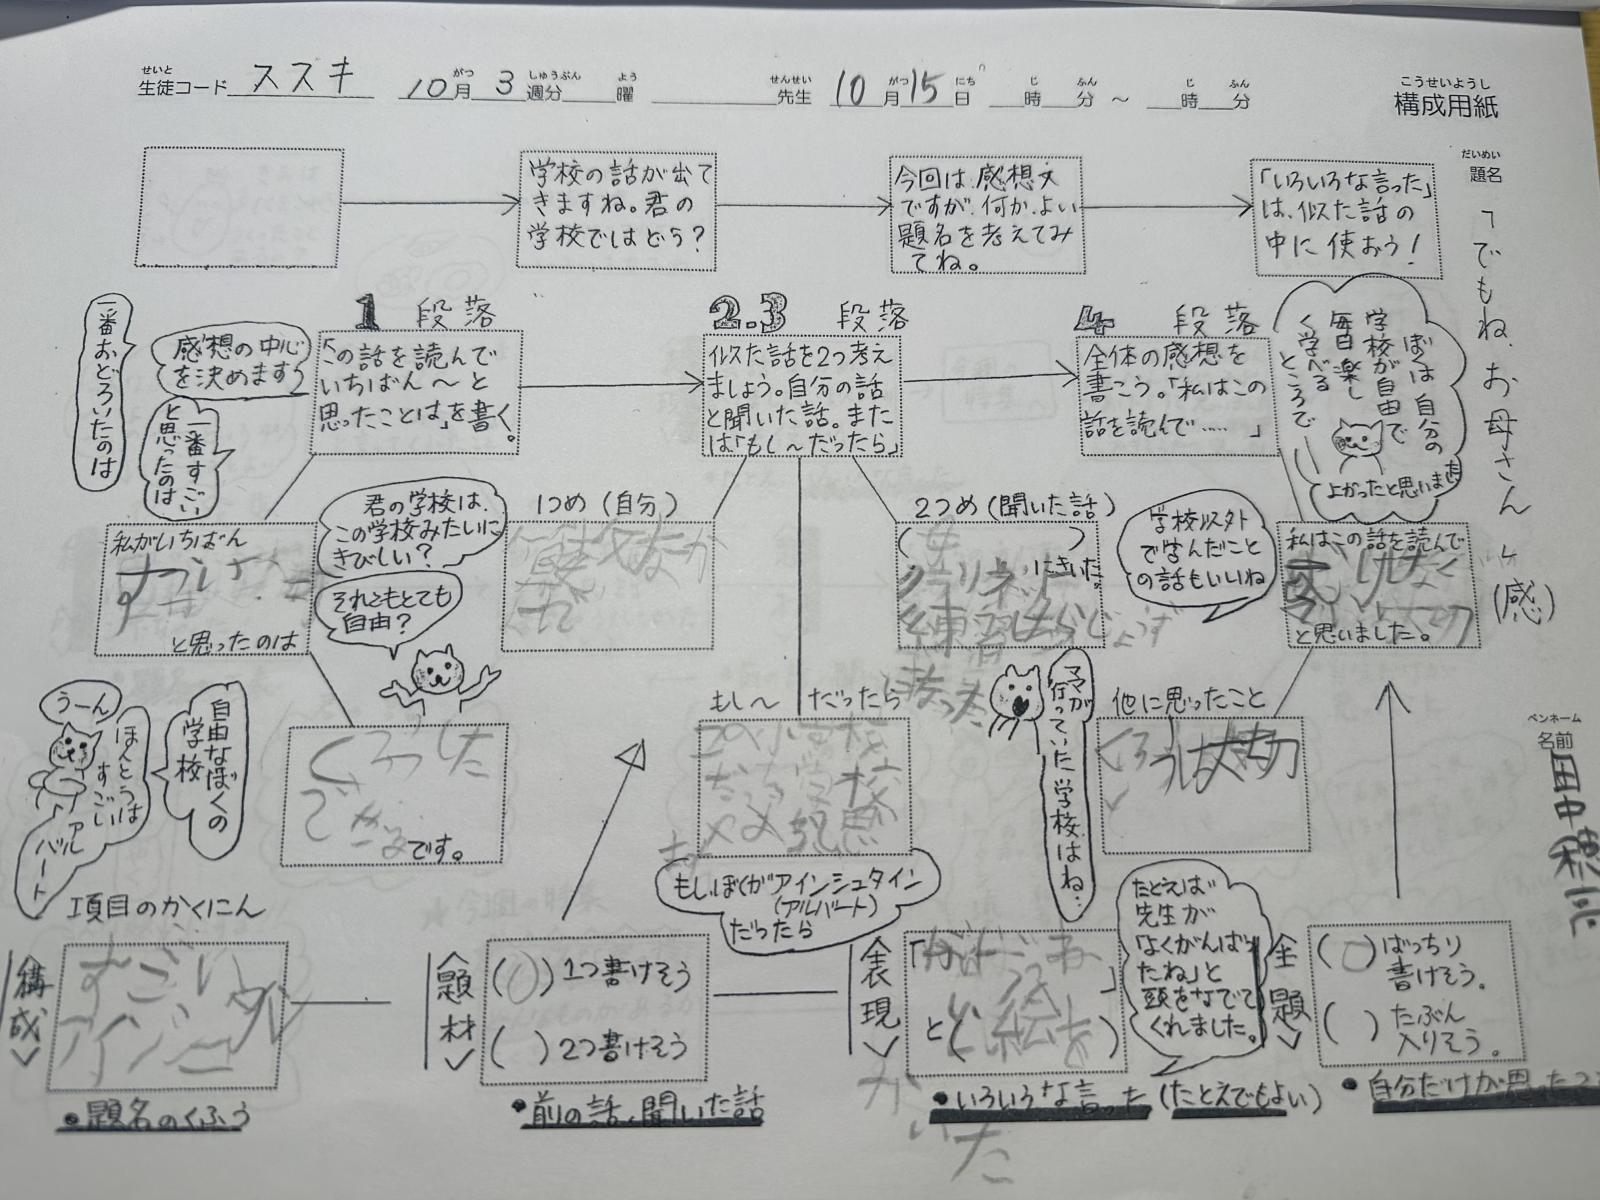 せいと
生徒コード ススキ
がつ しゅうぶん よう
10月3週分 曜
せんせい がつ にち じ ふん じ ふん
先生 10月15日 時 分 ～ 時 分
こうせいようし
構成用紙
だいめい
題名
「でもね、お母さん」(感)
ペンネーム
名前
田中
学校の話が出て
きますね。君の
学校ではどう？
今回は、感想文
ですが、何か、よい
題名を考えてみ
てね。
「いろいろな言った」
は、似た話の
中に使おう！
1 段落
「この話を読んで
いちばん～と
思ったことは」を書く。
2.3 段落
似た話を2つ考え
ましょう。自分の話
と聞いた話。また
は「もし～だったら」
4 段落
全体の感想を
書こう。「私はこの
話を読んで……」
ぼくは自分の
学校が自由で
毎日楽し
く学べる
ところで
よかったと思います
一番おどろいたのは
感想の中心
を決めます
一番すごい
と思ったのは
私がいちばん
すごい
と思ったのは
君の学校は、
この学校みたいに
きびしい？
それともとても
自由？
1つめ（自分）
2つめ（聞いた話）
（母）
にきいた。
クラリネット
練習したらじょうず
学校以外
で学んだこと
の話もいいね
私はこの話を読んで
と思いました。
うーん
ほんとうは
すごい
アル
バート
自由なぼくの
学校
です。
もし～だったら
この小学校
だったら学校
ママが
行っていた学校はね…
他に思ったこと
くろうは大切
もしぼくがアインシュタイン
（アルバート）
だったら
項目のかくにん
〈構成〉
すごい
アインシュ
・題名のくふう
〈題材〉
（○）1つ書けそう
（ ）2つ書けそう
・前の話、聞いた話
〈表現〉
「がんばったね」
と（ ）
たとえば
先生が
「よくがんばっ
たね」と
頭をなでて
くれました。
・いろいろな言った（たとえでもよい）
〈主題〉
（○）ばっちり
書けそう。
（ ）たぶん
入りそう。
・自分だけが思ったこ